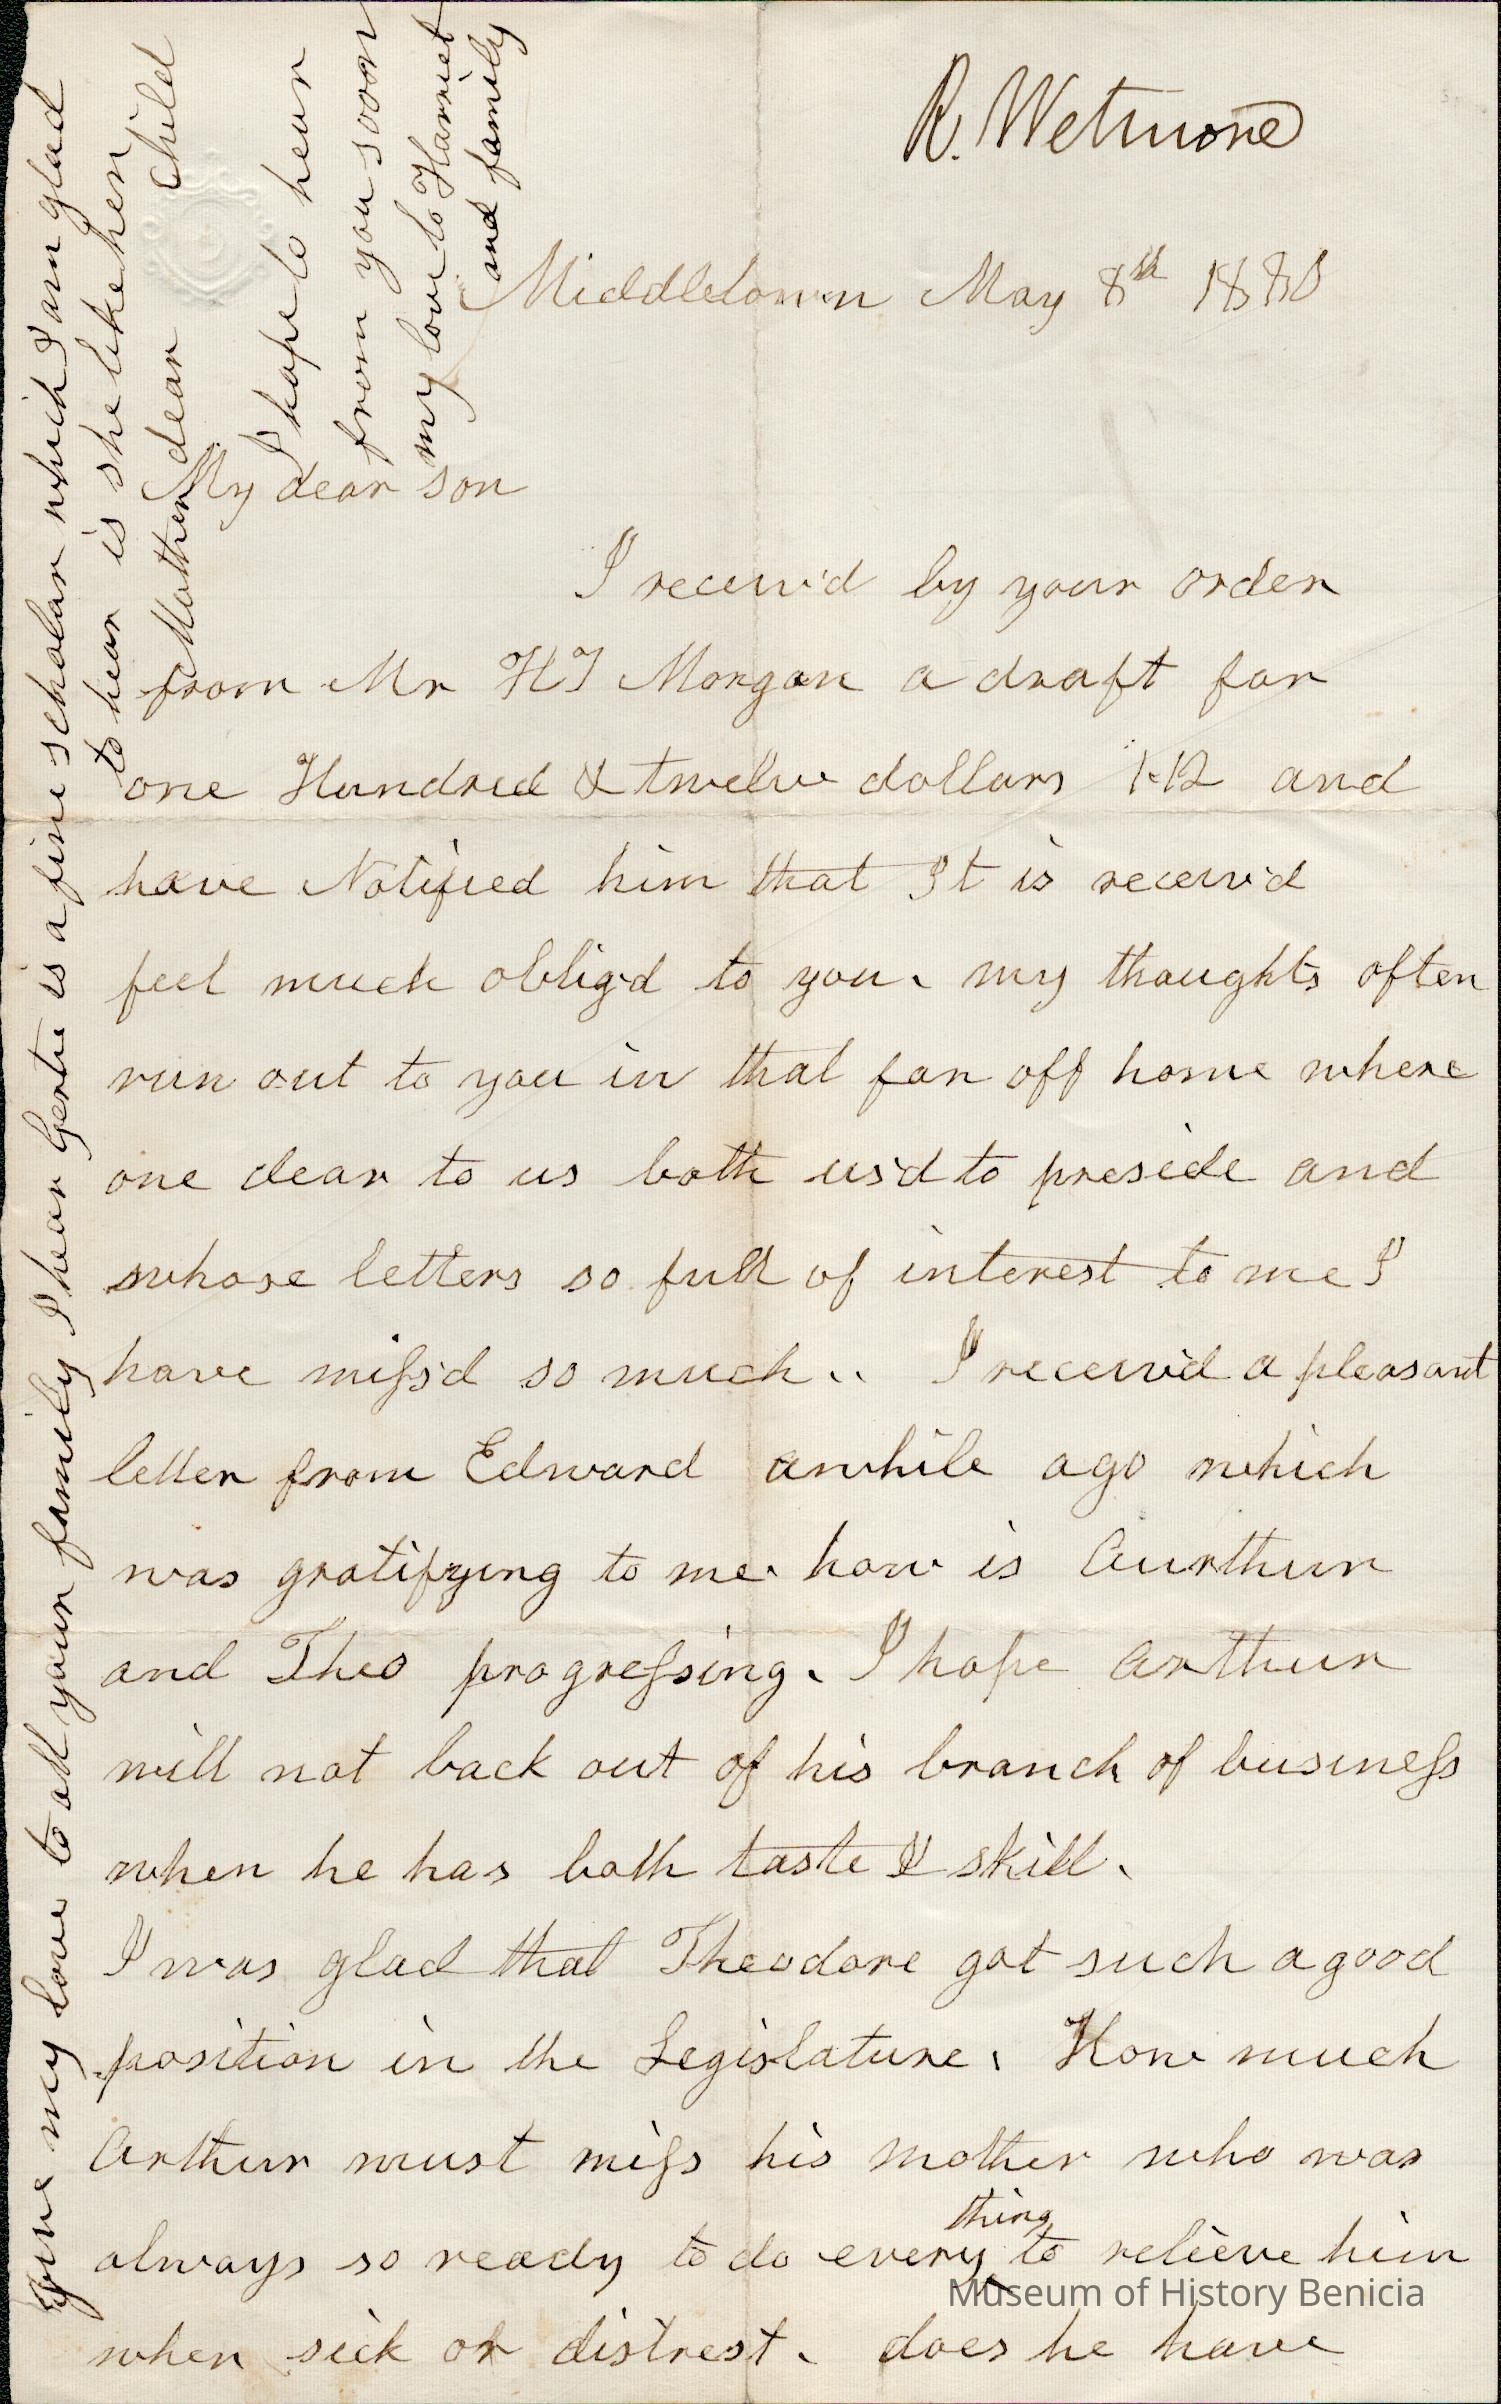 R. Wetmore
Middletown May 8th 1880
My dear son
I receiv'd by your order
from Mr HT Morgan a draft for
one Hundred & twelve dollars 112 and
have Notified him that It is receiv'd
feel much oblig'd to you. my thoughts often
run out to you in that far off home where
one dear to us both us'd to preside and
whose letters so full of interest to me I
have miss'd so much.. I receiv'd a pleasant
letter from Edward awhile ago which
was gratifying to me. how is Aurthur
and Theo progressing. I hope Arthur
will not back out of his branch of business
when he has both taste & skill.
I was glad that Theodore got such a good
position in the Legislature. How much
Arthur must miss his mother who was
always so ready to do every thing to relieve him
when sick or distrest. does he have
Give my love to all your family I hear Gertie is a fine scholar which I am glad
to hear is she like her
Mother dear child
I hope to hear
from you soon
my love to Harriet
and family
Museum of History Benicia